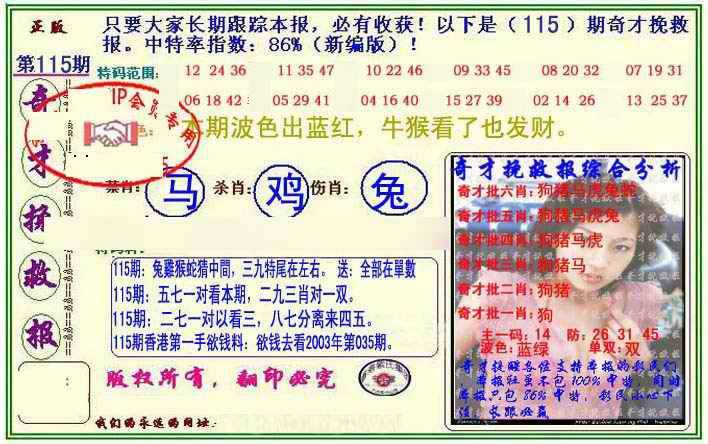 正版
只要大家长期跟踪本报，必有收获！以下是（115）期奇才挽救
报。中特率指数：86%（新编版）！
第115期
特码范围：
12 24 36 11 35 47 10 22 46 09 33 45 08 20 32 07 19 31
06 18 42 05 29 41 04 16 40 15 27 39 02 14 26 13 25 37
IP会员专用
本期波色出蓝红，牛猴看了也发财。
马 杀肖：鸡 伤肖：兔
奇才挽救报
115期：兔雞猴蛇猜中間，三九特尾在左右。 送：全部在單數
115期：五七一对看本期，二九三肖对一双。
115期：二七一对以看三，八七分离来四五。
115期香港第一手欲钱料：欲钱去看2003年第035期。
版权所有，翻印必究
我们的永远的网址：
奇才挽救报综合分析
奇才批六肖：狗猪马虎兔蛇
奇才批五肖：狗猪马虎兔
奇才批四肖：狗猪马虎
奇才批三肖：狗猪马
奇才批二肖：狗猪
奇才批一肖：狗
主一码：14 防：26 31 45
波色：蓝绿 单双：双